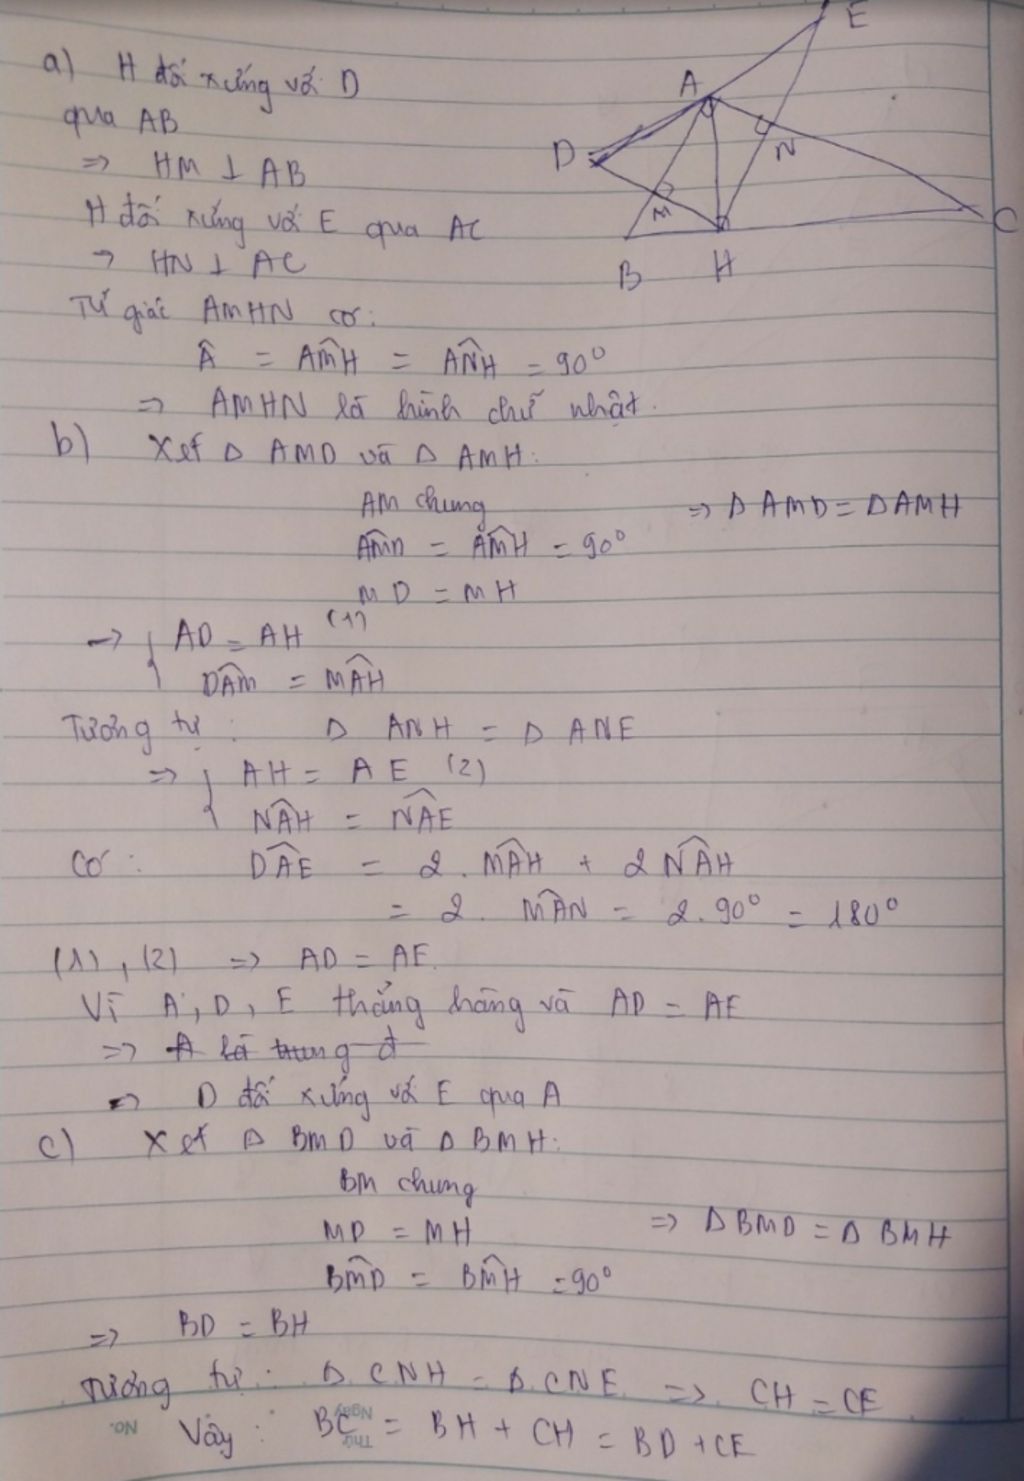 a) H đối xứng với D
qua AB
=> HM ⊥ AB
H đối xứng với E qua AC
=> HN ⊥ AC
Tứ giác AMHN có:
Â = AM̂H = AN̂H = 90°
=> AMHN là hình chữ nhật.
E
A
D
N
M
C
B
H
b) Xét Δ AMD và Δ AMH:
AM chung
AM̂D = AM̂H = 90°
MD = MH
=> Δ AMD = Δ AMH
=> { AD = AH (1)
DÂM = MÂH
Tương tự : Δ ANH = Δ ANE
=> { AH = AE (2)
NÂH = NÂE
Có : DÂE = 2. MÂH + 2 NÂH
= 2. MÂN = 2.90° = 180°
(1), (2) => AD = AE.
Vì A, D, E thẳng hàng và AD = AE
=> A là trung đ
=> D đối xứng với E qua A
c) Xét Δ BMD và Δ BMH:
BM chung
MD = MH
BM̂D = BM̂H = 90°
=> Δ BMD = Δ BMH
=> BD = BH
Tương tự : Δ CNH = Δ CNE => CH = CE
Vậy : BC = BH + CH = BD + CE
No.
Thứ
Ngày